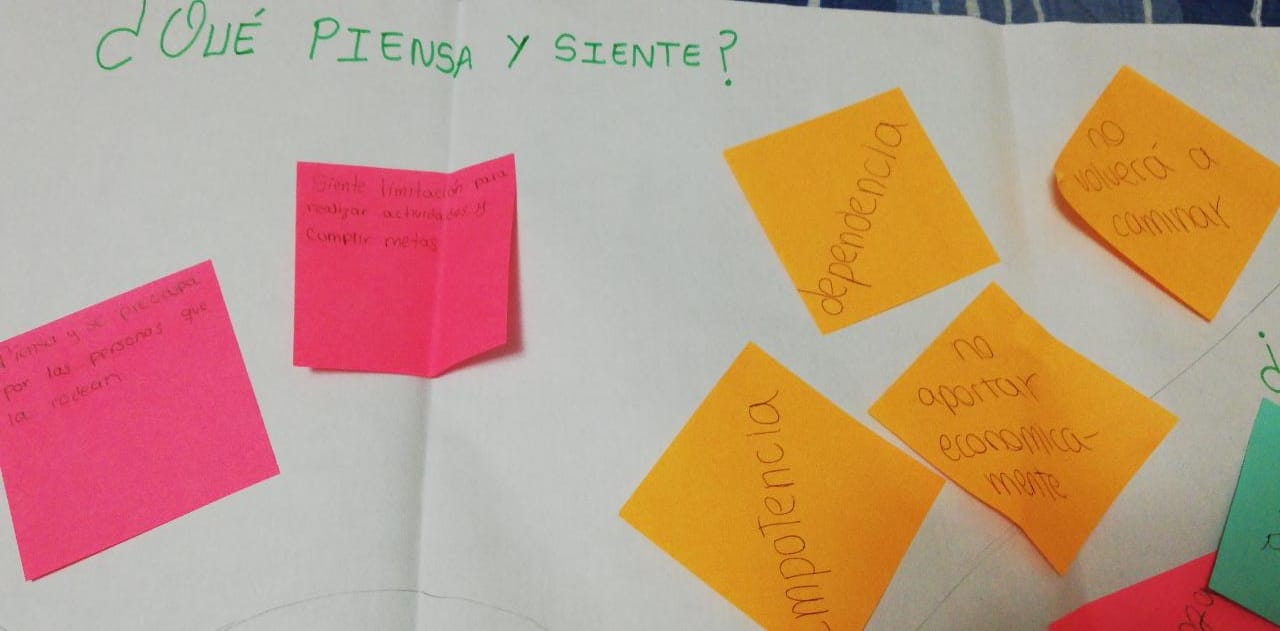 ¿QUÉ PIENSA Y SIENTE?
Siente limitación para
realizar actividades y
cumplir metas
Piensa y se preocupa
por las personas que
la rodean
dependencia
no
volverá a
caminar
no
aportar
economica-
mente
impotencia
¿